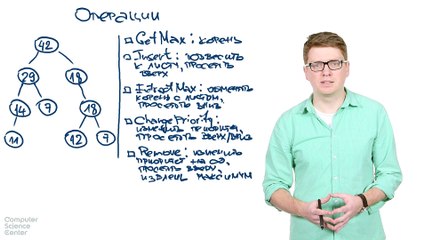 Операции
42
29
18
14
7
18
11
12
7
GetMax: корень
Insert: подвесить
к листу, просеять
вверх
ExtractMax: обменять
корень с листом,
просеять вниз
ChangePriority:
изменить приоритет,
просеять вверх/вниз
Remove: изменить
приоритет на ∞,
просеять вверх,
извлечь максимум
Computer
Science
Center